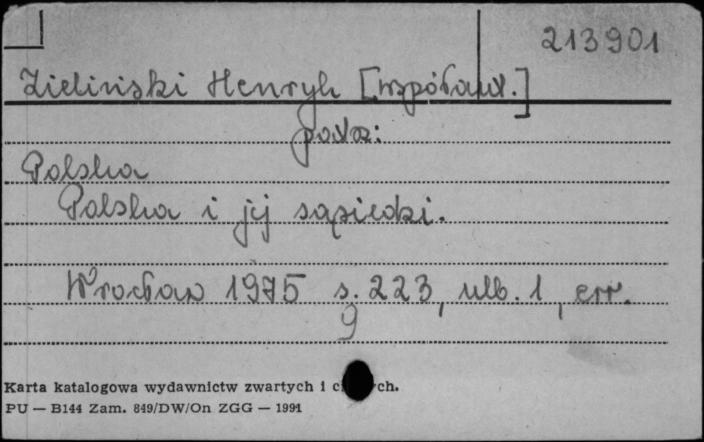 213901
Zieliński Henryk [współaut.]
patrz:
Polska
Polska i jej sąsiedzi.
Wrocław 1975 s. 223, nlb. 1, err.
9
Karta katalogowa wydawnictw zwartych i ch.
PU — B144 Zam. 849/DW/On ZGG — 1991